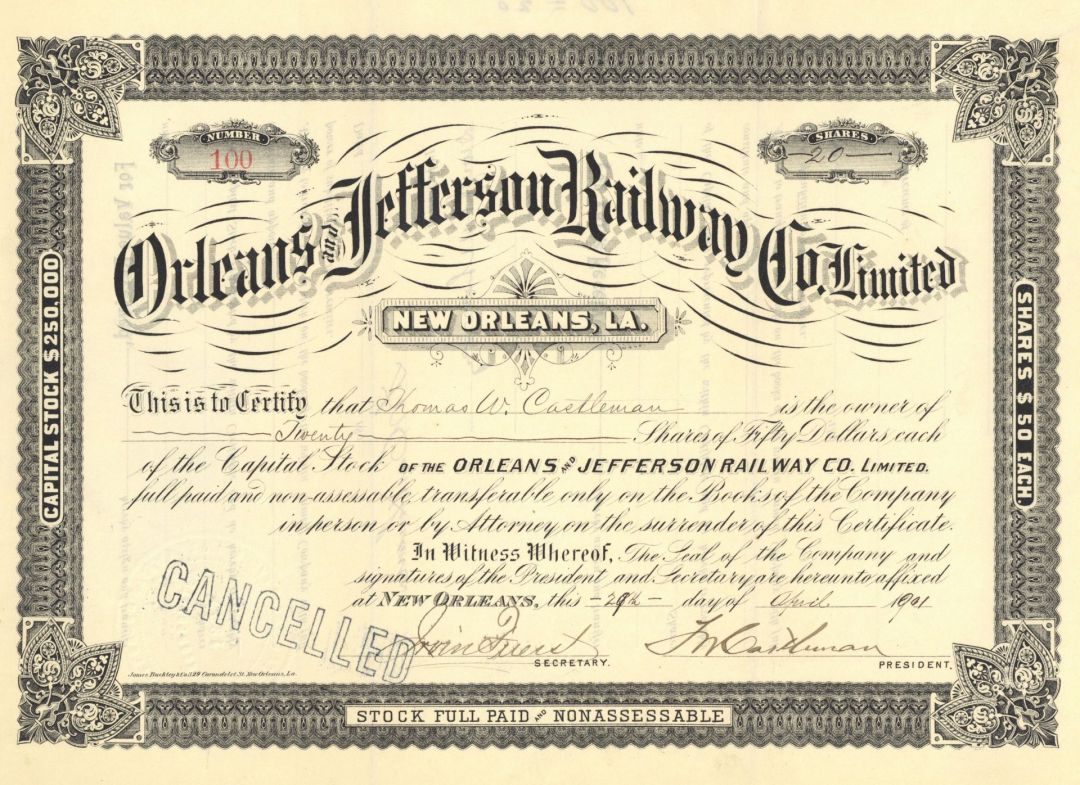 NUMBER
100
SHARES
20
Orleans and Jefferson Railway Co. Limited
NEW ORLEANS, LA.
CAPITAL STOCK $250,000
SHARES $50 EACH.
This is to Certify that Thomas W. Castleman is the owner of
Twenty Shares of Fifty Dollars each
of the Capital Stock OF THE ORLEANS AND JEFFERSON RAILWAY CO. LIMITED.
full paid and non-assessable, transferable only on the Books of the Company
in person or by Attorney on the surrender of this Certificate.
In Witness Whereof, The Seal of the Company and
signatures of the President and Secretary are hereunto affixed
at NEW ORLEANS, this 29th day of April 1901
CANCELLED
SECRETARY.
Castleman
PRESIDENT.
James Buckley & Co. 329 Carondelet St. New Orleans, La.
STOCK FULL PAID AND NONASSESSABLE